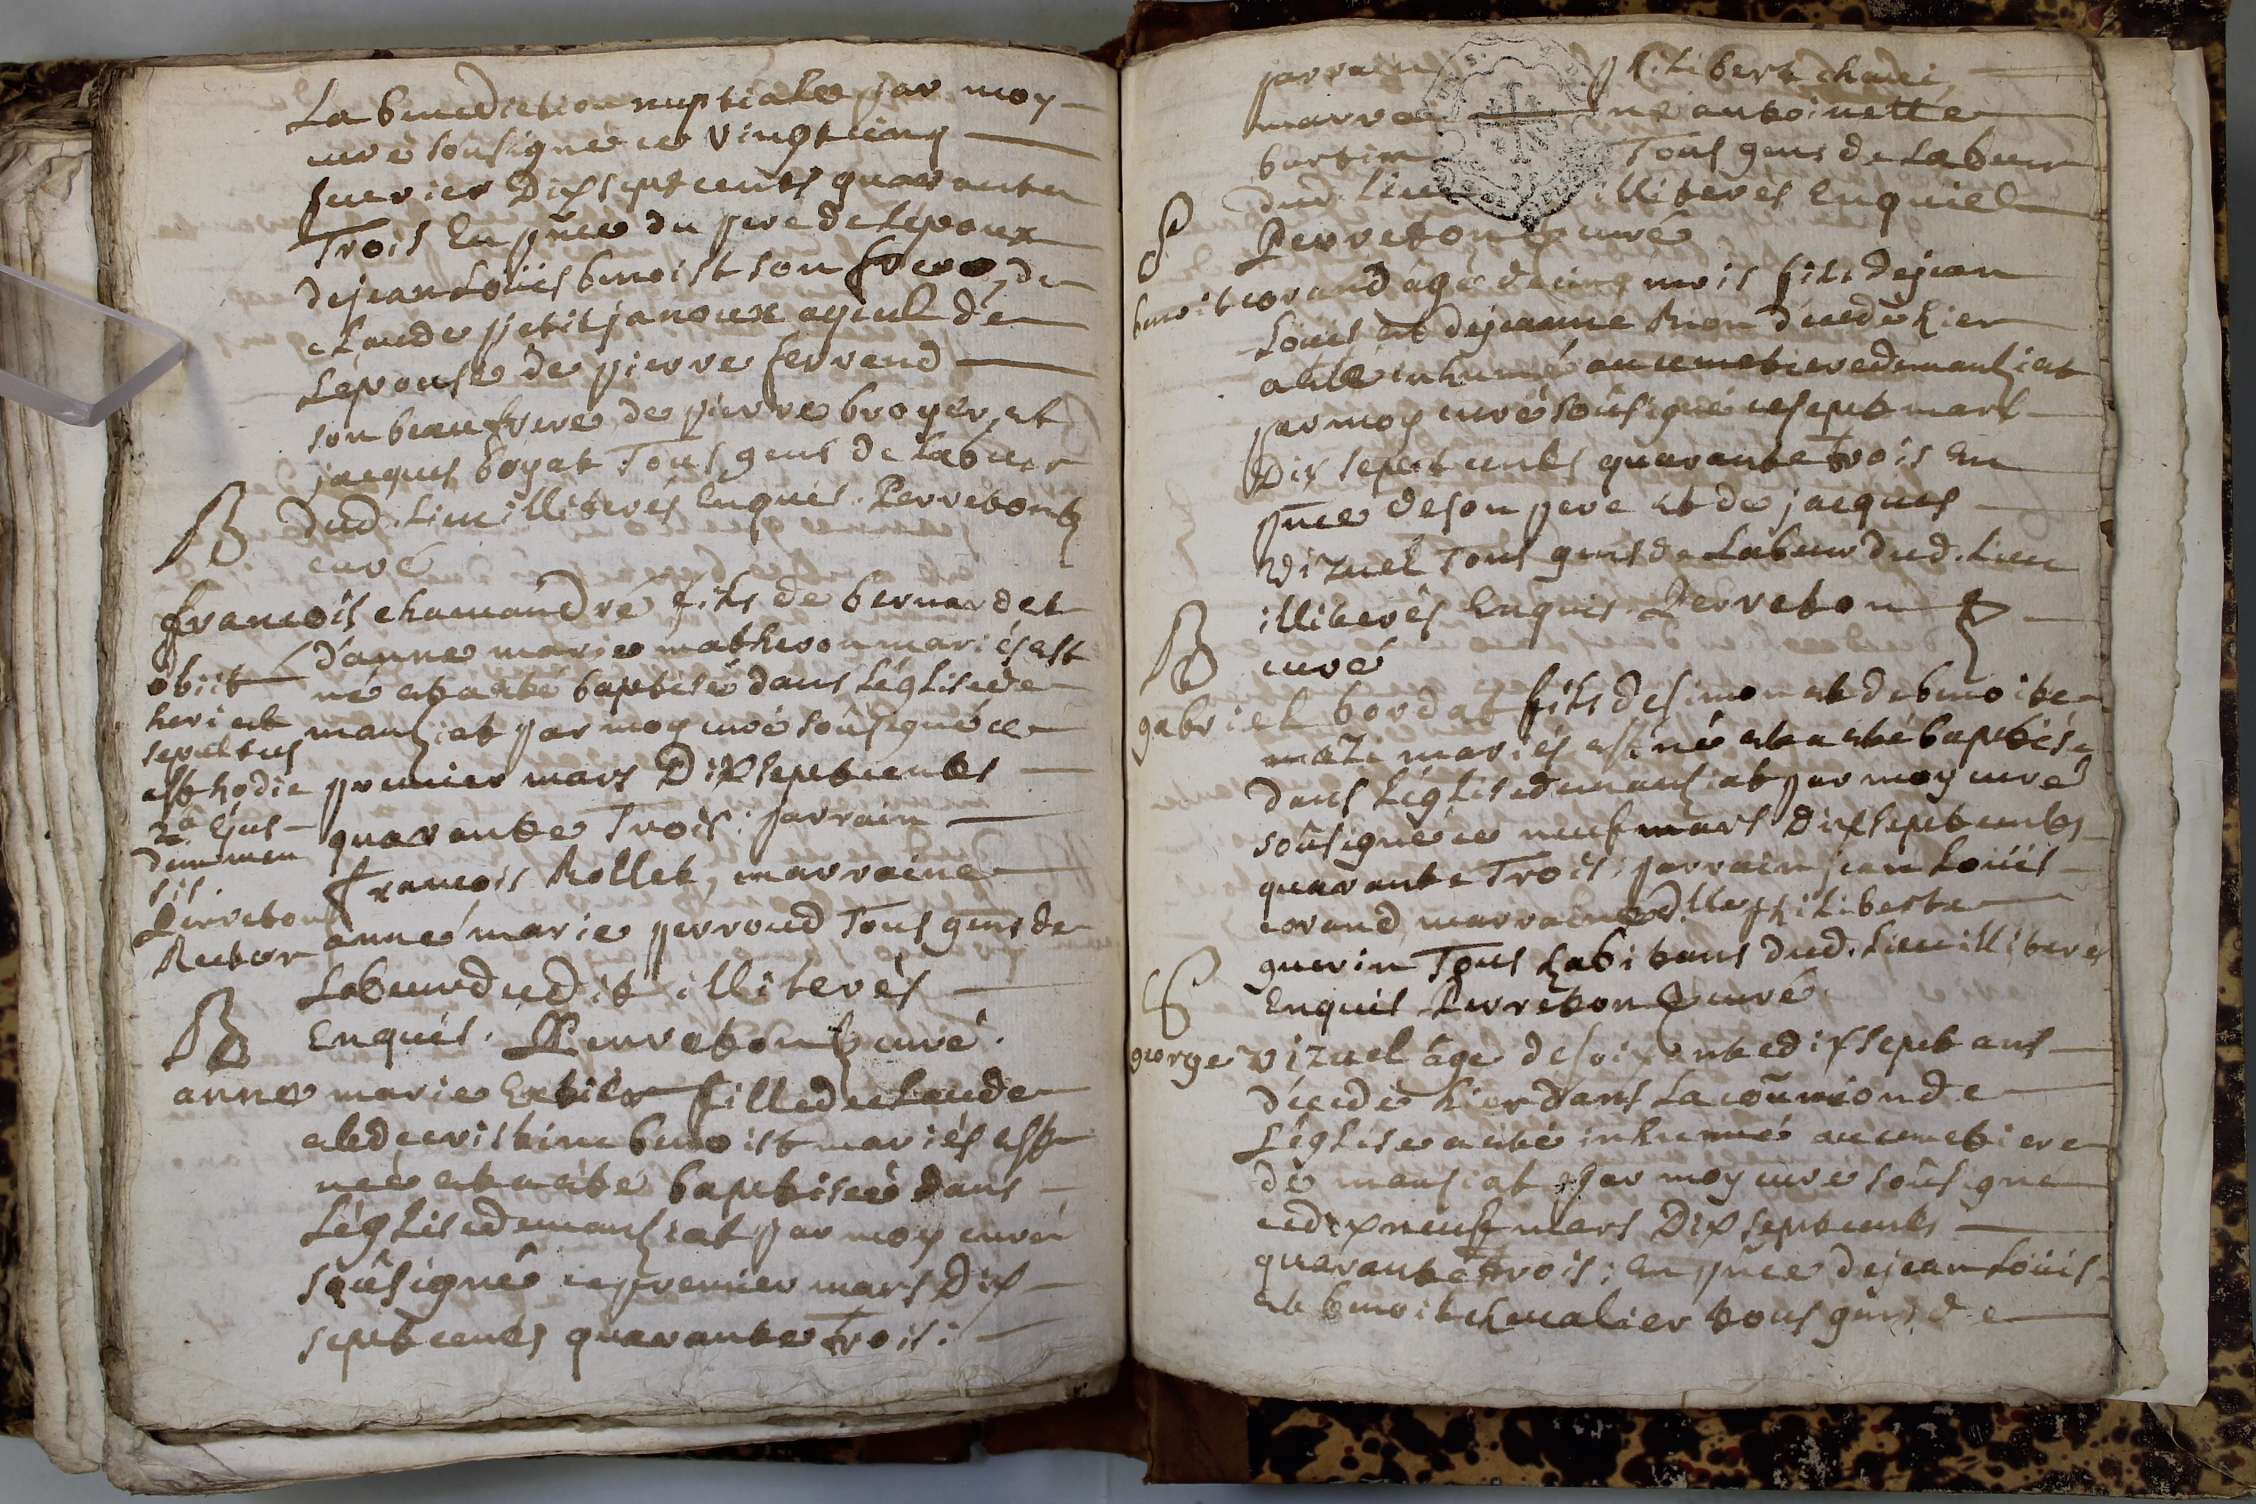 La benediction nuptiale par moy
curé soûsigné ce vingtcinq
fuevrier Dix sept cents quarante
Trois En pñce du pere de Lepoux
de jean Loüis benoist son frere, de
claude petitjanoux ayeul de
Lépouse de pierre ferrend
son beaufrere, de pierre broyer, et
jacques boyat Tous gens de Labeur
dud. Lieu illiterés Enquis. Perreton
curé
B
françois chamandré fils de bernard et
d'anne marie matheron mariés est
né et a eté baptisé dans L'églisede
manziat par moy curé soûsigné ce
premier mars Dix sept cents
quarante Trois: parrain
françois Rollet, marraine
anne marie perroud Tous gens de
Labeur dudit illiterés
Enquis. Perreton curé.
obiit
heri et
sepultus
est hodie
2a Ejus-
dem men
sis
Perreton
Rector
B
anne marie fille de claude
et de cristine benoist mariés est
née et a eté baptiseé dans
L'églisedemanziat par moy curé
soûsigné ce premier mars Dix
sept cents quarante Trois:
parrain philibert
marrai ne antoinette
Tous gens de Labeur
dud. lieu illiterés Enquis
Perreton curé
S
benoit corand agé de cinq mois fils de jean
Loüis et de jeanne Rion décedé hier
a eté inhumé au cemetiere de manziat
par moy curé soûsigné ce sept mars
Dix sept cents quarante Trois En
pñce de son pere et de jacques
vizuel Tous gens de Labeur dud. Lieu
illiterés Enquis. Perreton
curé
B
gabriel bordat fils de simon et de benoite
mariés est né et a eté baptisé
dans L'églisedemanziat par moy curé
soûsigné ce neuf mars Dix sept cents
quarante Trois; parrain jean Loüis
corand, marraine dlle philiberte
guerin Tous habitans dud. Lieu illiterés
Enquis Perreton curé
S
george vizuel âgé de soixante dix sept ans
décedé hier dans La coũnion de
L'église a eté inhumé au cemetiere
de manziat par moy curé soûsigné
ce dix neuf mars Dix sept cents
quarante Trois; en pñce de jean Loüis
et benoit chevalier tous gens de